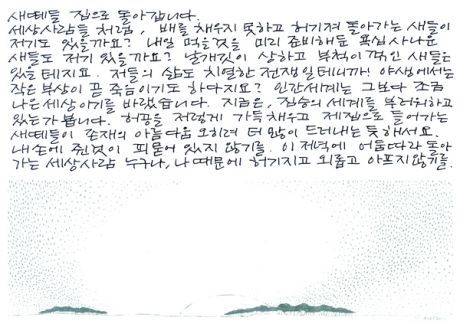 새떼들 집으로 돌아갑니다.
세상사람들 처럼, 배를 채우지 못하고 허기져 돌아가는 새들이
저기도 있을까요? 내일 먹을것을 미리 준비해둔 욕심사나운
새들도 저기 있을까요? 날개깃이 상하고 부척이 꺾인 새들은
있을 테지요. 저들의 삶도 치열한 전쟁일테니까! 야생에서는
작은 부상이 곧 죽음이기도 하다지요? 인간세계는 그보다 조금
나은 세상이기를 바랬습니다. 지금은, 짐승의 세계를 부러워하고
있는가 봅니다. 허공을 저렇게 가득 채우고 제집으로 돌아가는
새떼들이 존재의 아늘다움 오히려 더 많이 드러내는 듯 해서요.
내손에 쥔것이 피묻어 있지 않기를. 이 저녁에 어둠따라 돌아
가는 세상사람 누구나, 나 때문에 허기지고 외롭고 아프지않기를.